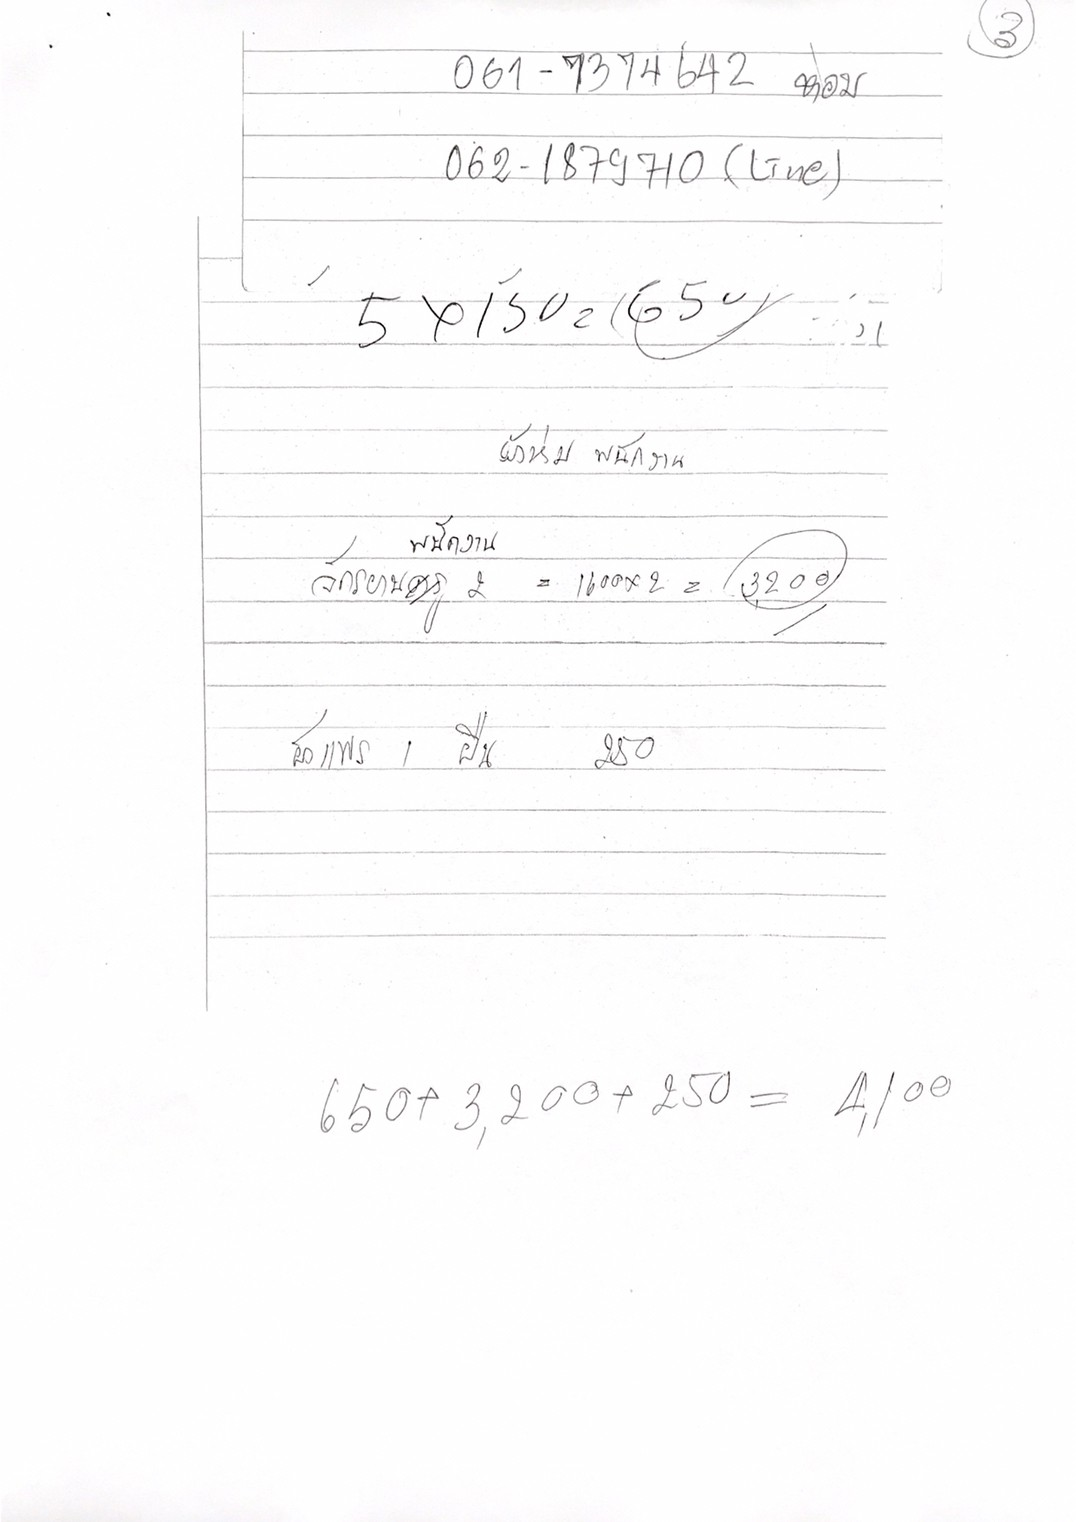 3
061-7374642 หอม
062-1879710 (Line)
5 x 130 = 650
ผ้าห่ม พนักงาน
พนักงาน
จักรยานครู 2 = 1600x2 = 3,200
ผ้าแพร 1 ผืน 250
650+3,200+250 = 4,100